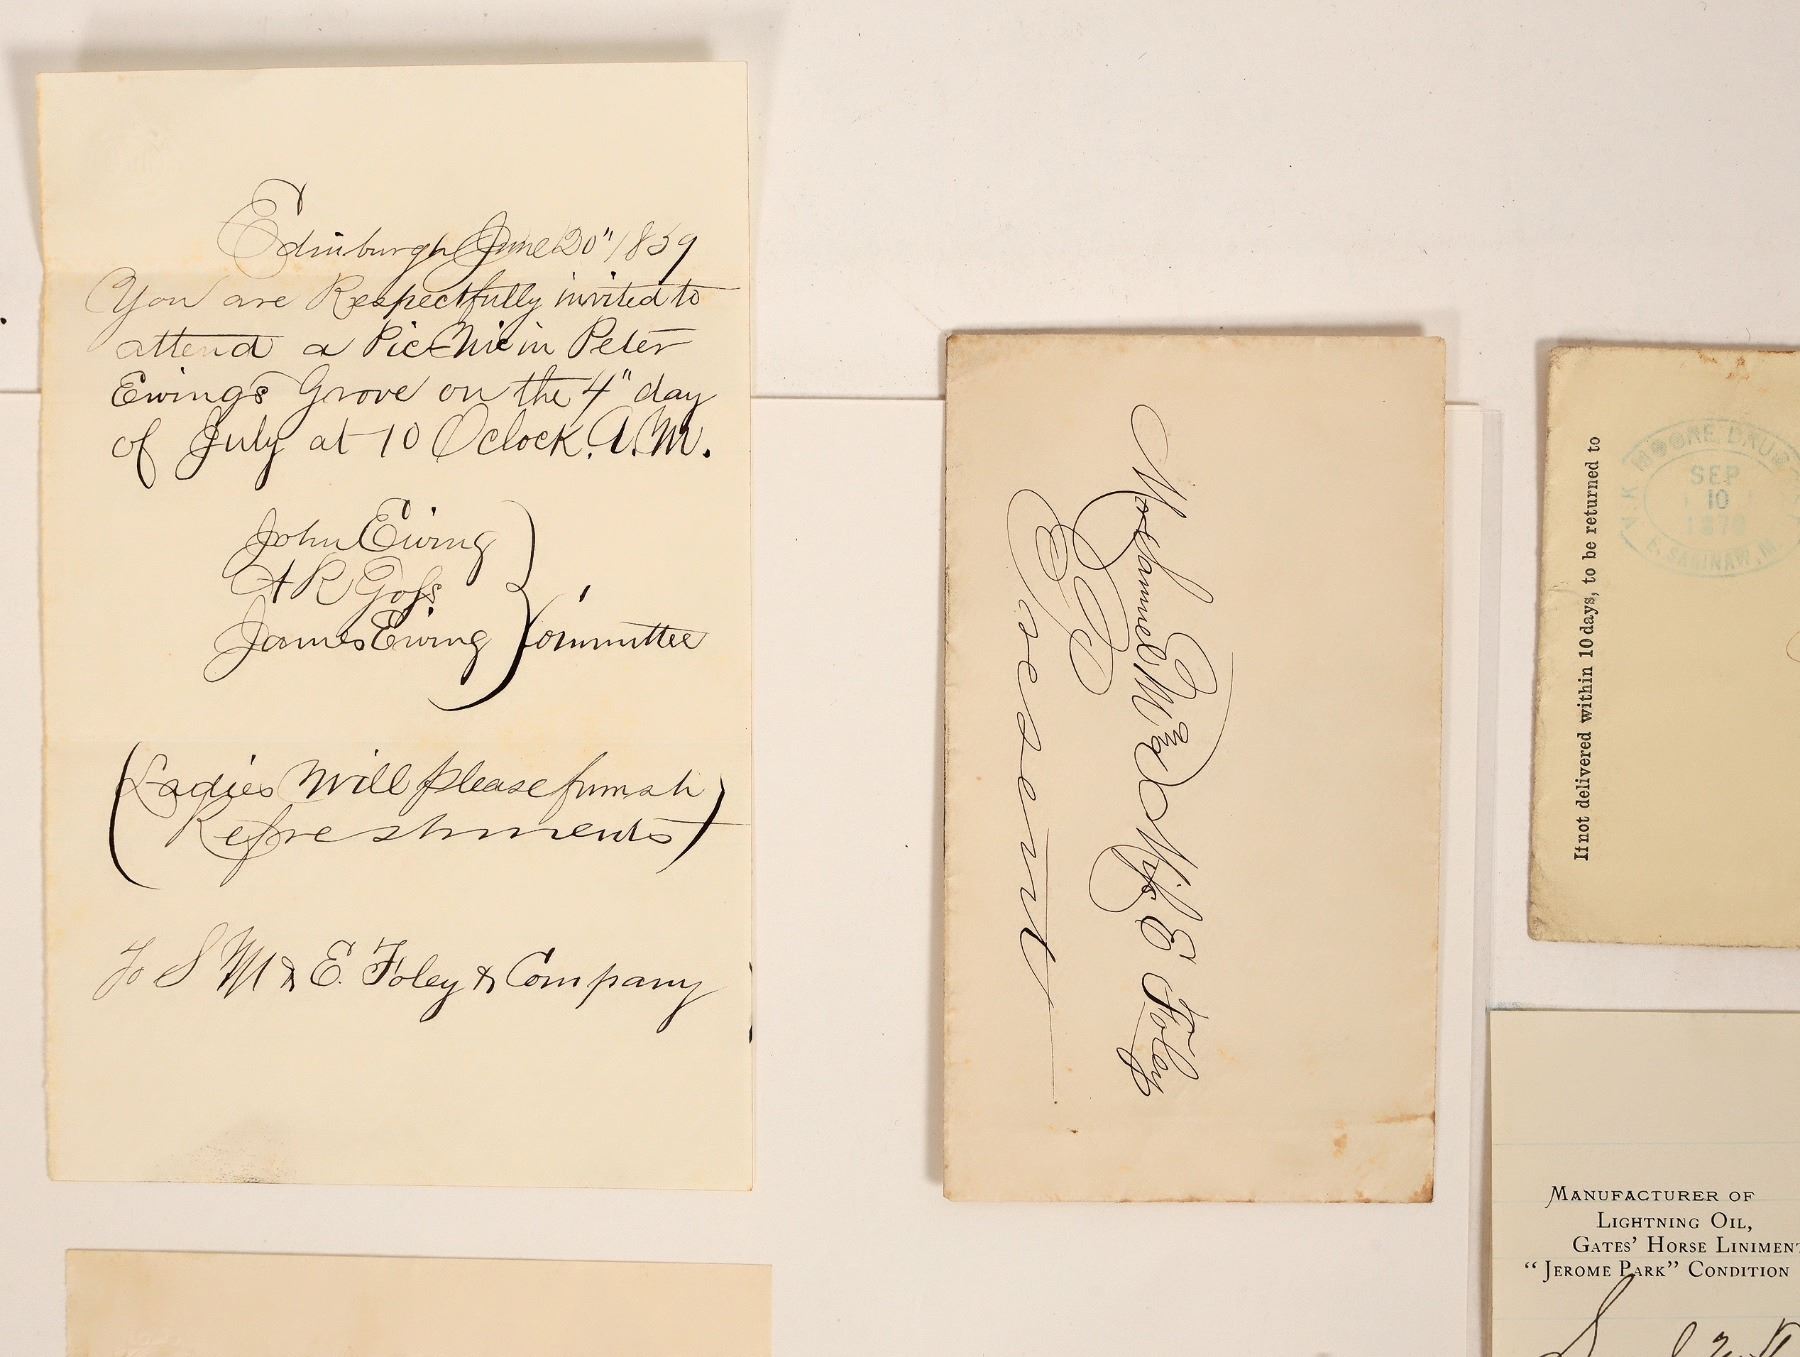 Edinburgh June 20" 1859
You are Respectfully invited to
attend a Pic Nic in Peter
Ewing's Grove on the 4" day
of July at 10 Oclock. A.M.
John Ewing
A R Goss
James Ewing
Committee
(Ladies Will please furnish
Refreshments)
To S M & E. Foley & Company
M. And Wife E Foley
Present
If not delivered within 10 days, to be returned to
MOORE DRUG
SEP
10
E. SAGINAW, M
MANUFACTURER OF
LIGHTNING OIL,
GATES' HORSE LINIMENT
"JEROME PARK" CONDITION